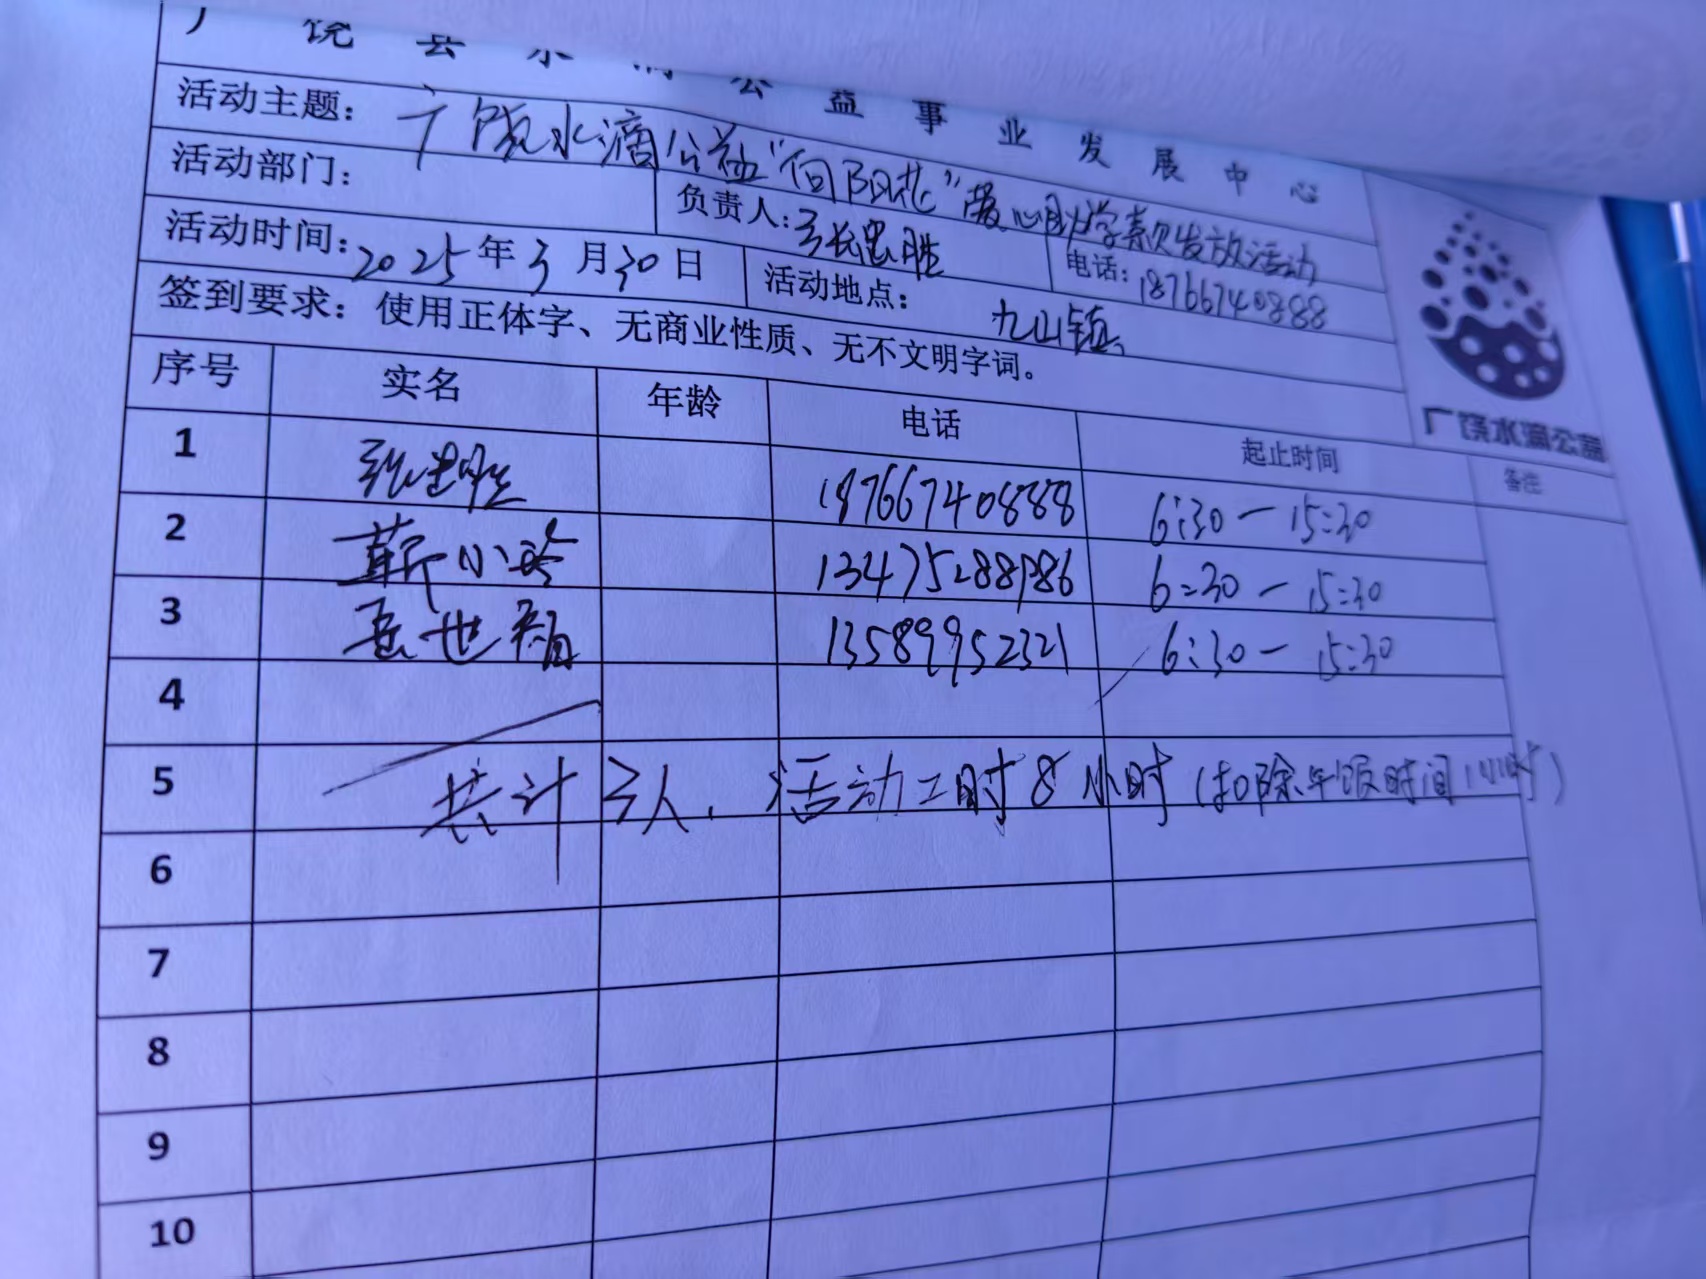 广饶县水滴公益事业发展中心
活动主题: 广饶水滴公益"向阳花"暖心助学款发放活动
活动部门: 负责人: 张忠胜 电话: 18766740888
活动时间: 2025年3月30日 活动地点: 九山镇
签到要求: 使用正体字、无商业性质、无不文明字词。
序号 实名 年龄 电话 起止时间 备注
1 张忠胜 18766740888 6:30－15:30
2 靳小玲 13475288986 6:30－15:30
3 岳世 13589952321 6:30－15:30
4
5 共计3人, 活动工时8小时(扣除午饭时间1小时)
6
7
8
9
10
广饶水滴公益